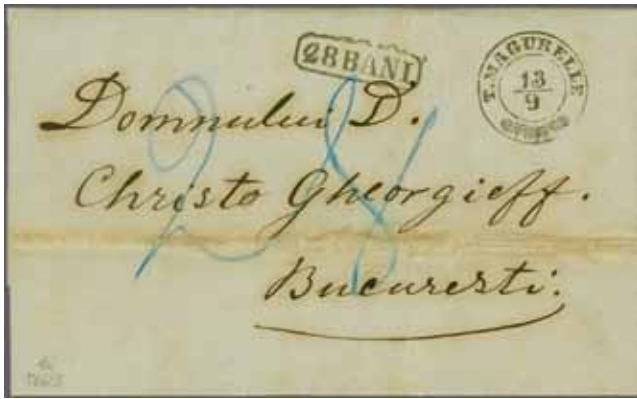 28 BANI
T. MAGURELLE
13
9
Domnului D.
Christo Gheorgieff.
Bucuresti.
28